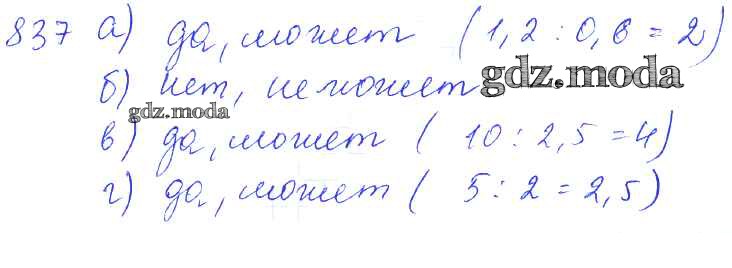 837 а) да, может (1,2 : 0,6 = 2)
б) нет, не может gdz.moda
gdz.moda
в) да, может ( 10 : 2,5 = 4)
г) да, может ( 5 : 2 = 2,5)